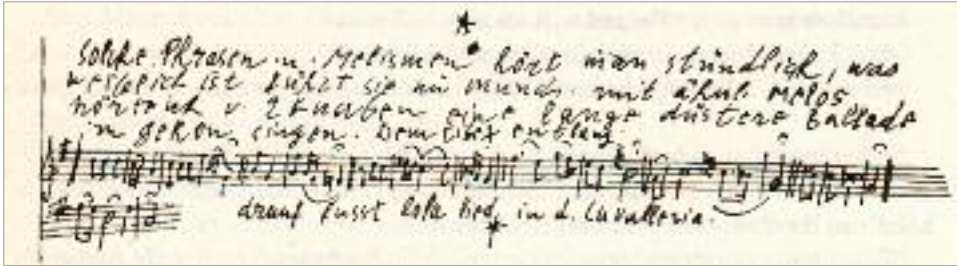 Solche Phrasen u. Melismen hört man stündlich, was
ist führt sie im Munde. mit ähnl. Melos
hörte ich v. 2 Knaben eine lange düstere Ballade
im gehen singen. Dem Tiber entlang.
drauf fusst Lola Lied, in d. Cavalleria.